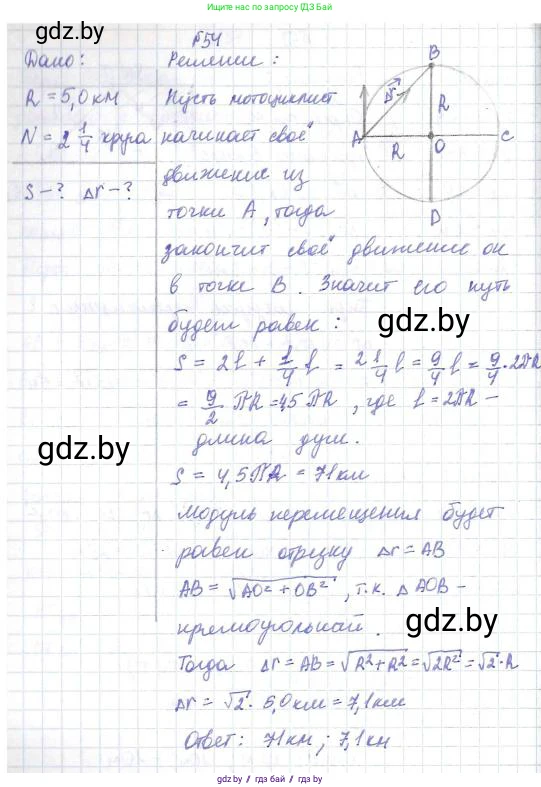 Только по запросу ГДЗ by в поиске
№54
Дано:
Решение:
R = 5,0 км
N = 2 1/4 круга
S - ? Δr - ?
Пусть мотоциклист
начинает своё
движение из
точки A, тогда
B
Δr
R
A
R
O
C
D
закончит своё движение он
в точке B. Значит его путь
будет равен:
gdz.by
S = 2l + 1/4 l = 2 1/4 l = 9/4 l = 9/4 · 2πR
= 9/2 πR = 4,5 πR, где l = 2πR -
длина дуги.
gdz.by
S = 4,5πR = 71 км
Модуль перемещения будет
равен отрезку Δr = AB
AB = √AO² + OB², т.к. Δ AOB -
прямоугольный.
gdz.by
Тогда Δr = AB = √R² + R² = √2R² = √2 · R
Δr = √2 · 5,0 км = 7,1 км
Ответ: 71 км; 7,1 км
gdz.by / гдз бай / гдз by
gdz.by